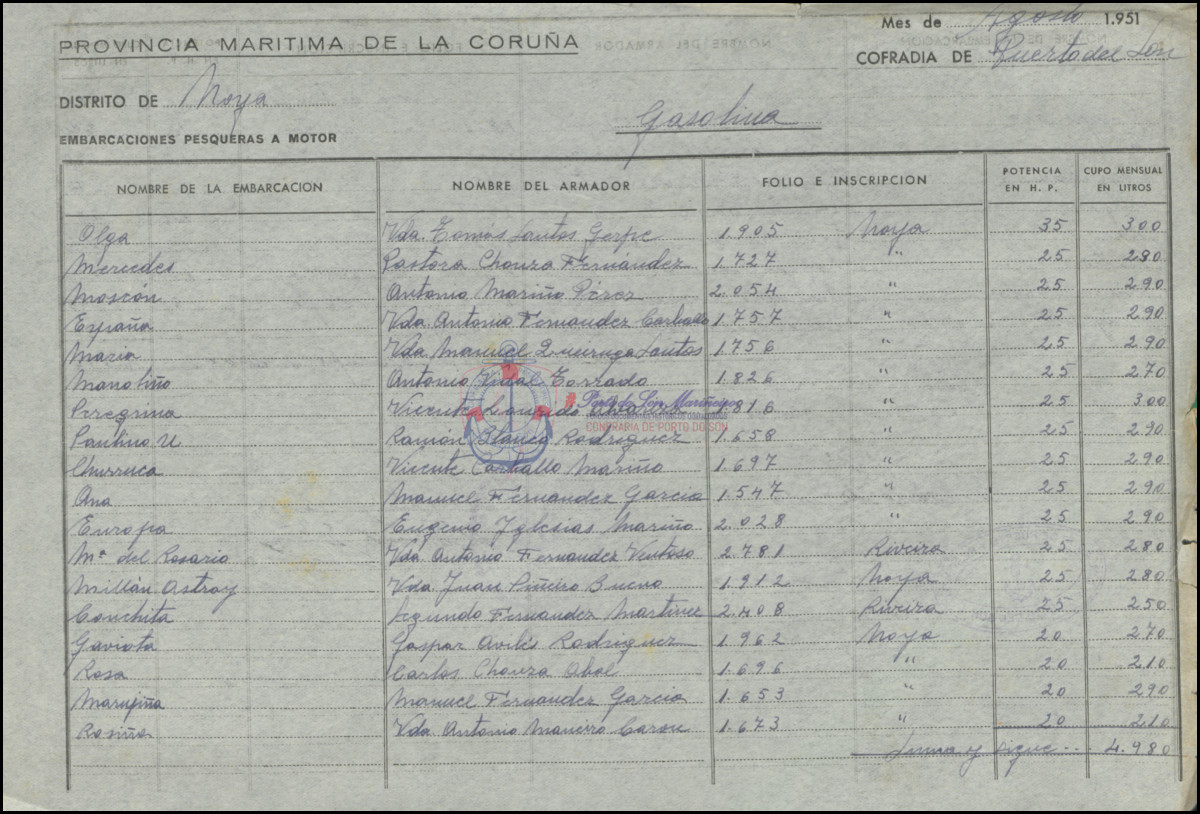 Mes de Agosto 1.951
PROVINCIA MARITIMA DE LA CORUÑA
COFRADIA DE Puerto del Son
DISTRITO DE Noya
Gasolina
EMBARCACIONES PESQUERAS A MOTOR
NOMBRE DE LA EMBARCACION NOMBRE DEL ARMADOR FOLIO E INSCRIPCION POTENCIA EN H. P. CUPO MENSUAL EN LITROS
Olga Vda. Tomás Santos Gerpe 1.905 Noya 35 300
Mercedes Pastora Chouza Fernández 1.727 " 25 280
Moscón Antonio Mariño Pérez 2.054 " 25 290
España Vda. Antonio Fernandez Carballo 1.757 " 25 290
Maria Vda Manuel Quiruga Santos 1.756 " 25 290
Manoliño Antonio Vidal Torrado 1.826 " 25 270
Peregrina Vicente 1.816 " 25 300
Paulino U Ramón Blanco Rodriguez 1.658 " 25 290
Churruca Vicente Carballo Mariño 1.697 " 25 290
Ana Manuel Fernandez Garcia 1.547 " 25 290
Europa Eugenio Yglesias Mariño 2.028 " 25 290
Mª del Rosario Vda Antonio Fernandez Ventoso 2.781 Riveira 25 280
Millán Astray Vda. Juan Piñeiro Bueno 1.912 Noya 25 280
Conchita Segundo Fernandez Martinez 2.408 Riveira 25 250
Gaviota Gaspar Avilés Rodriguez 1.962 Noya 20 270
Rosa Carlos Chouza Abal 1.696 " 20 210
Marujiña Manuel Fernandez Garcia 1.653 " 20 290
Rosiña Vda. Antonio Maneiro 1.673 " 20 210
Suma y sigue... 4.980
Porto do Son Mariñeiro
CONFRARÍA DE PORTO DO SON